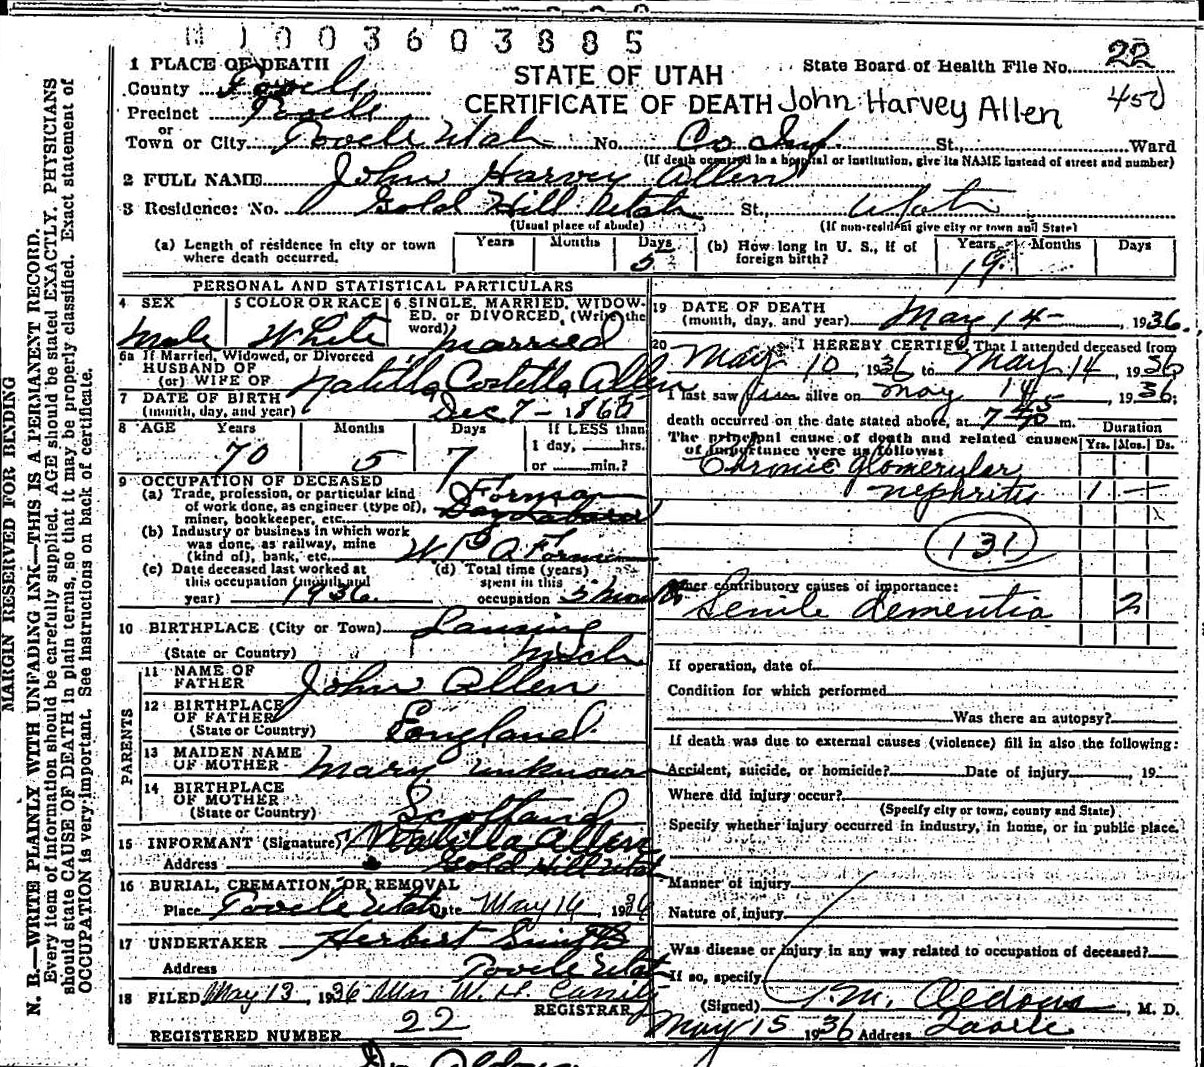 M 1 0 0 3 6 0 3 8 8 5
1 PLACE OF DEATH
County Tooele
Precinct Tooele
or
Town or City Tooele Utah No. Co Inf. St., Ward
(If death occurred in a hospital or institution, give its NAME instead of street and number)
STATE OF UTAH
CERTIFICATE OF DEATH John Harvey Allen
State Board of Health File No. 22
450
2 FULL NAME John Harvey Allen
3 Residence: No. Gold Hill Utah St., Utah
(Usual place of abode) (If non-resident give city or town and State)
(a) Length of residence in city or town where death occurred. Years Months Days 5
(b) How long in U. S., if of foreign birth? Years Months Days 19
PERSONAL AND STATISTICAL PARTICULARS
4 SEX Male
5 COLOR OR RACE White
6 SINGLE, MARRIED, WIDOWED, or DIVORCED, (Write the word) Married
6a If Married, Widowed, or Divorced
HUSBAND OF
(or) WIFE OF Natilla Costella Allen
7 DATE OF BIRTH
(month, day, and year) Dec 7 - 1865
8 AGE Years 70 Months 5 Days 7
If LESS than
1 day, hrs.
or min.?
9 OCCUPATION OF DECEASED
(a) Trade, profession, or particular kind
of work done, as engineer (type of),
miner, bookkeeper, etc. Day Laborer
(b) Industry or business in which work
was done, as railway, mine
(kind of), bank, etc. W P A
(c) Date deceased last worked at
this occupation (month and
year) 1936.
(d) Total time (years)
spent in this
occupation 5 months
10 BIRTHPLACE (City or Town) Lansing
(State or Country) Mich
PARENTS
11 NAME OF
FATHER John Allen
12 BIRTHPLACE
OF FATHER
(State or Country) England.
13 MAIDEN NAME
OF MOTHER Mary unknown
14 BIRTHPLACE
OF MOTHER
(State or Country) Scotland
15 INFORMANT (Signature) Natilla Allen
Address Gold Hill Utah
16 BURIAL, CREMATION, OR REMOVAL
Place Tooele Utah Date May 16, 1936
17 UNDERTAKER Herbert
Address Tooele Utah
18 FILED May 13, 1936 Mrs W. H.
REGISTRAR
REGISTERED NUMBER 22
19 DATE OF DEATH
(month, day, and year) May 14- 1936.
20 I HEREBY CERTIFY That I attended deceased from
May 10, 1936 to May 14, 1936
I last saw him alive on May 14, 1936;
death occurred on the date stated above, at 7 m.
The principal cause of death and related causes
of importance were as follows: Duration
Yrs. Mos. Ds.
Chronic glomerular
nephritis 1 -
131
Other contributory causes of importance:
Senile dementia 2
If operation, date of
Condition for which performed
Was there an autopsy?
If death was due to external causes (violence) fill in also the following:
Accident, suicide, or homicide? Date of injury , 19
Where did injury occur?
(Specify city or town, county and State)
Specify whether injury occurred in industry, in home, or in public place.
Manner of injury
Nature of injury
Was disease or injury in any way related to occupation of deceased?
If so, specify
(Signed) M. Aldous, M. D.
May 15 1936 Address Tooele
MARGIN RESERVED FOR BINDING
N. B.—WRITE PLAINLY WITH UNFADING INK—THIS IS A PERMANENT RECORD.
Every item of information should be carefully supplied. AGE should be stated EXACTLY. PHYSICIANS
should state CAUSE OF DEATH in plain terms, so that it may be properly classified. Exact statement of
OCCUPATION is very important. See instructions on back of certificate.